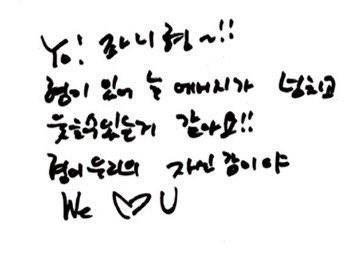 Yo! 콰니형~!!
형이 있어 늘 에너지가 넘치고
웃을수있는거 같아요!!
형이 우리의 자신감이야
We ♡ U